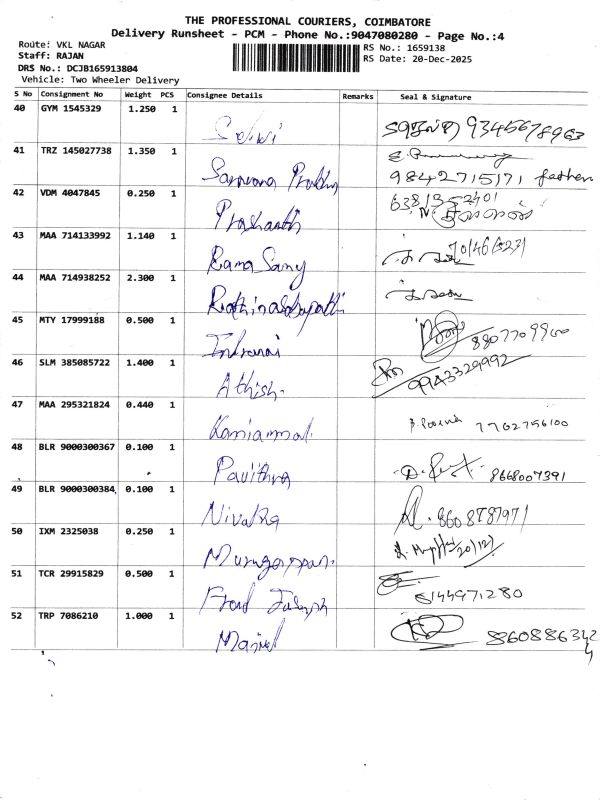 THE PROFESSIONAL COURIERS, COIMBATORE
Delivery Runsheet - PCM - Phone No.:9047080280 - Page No.:4
Route: VKL NAGAR
RS No.: 1659138
Staff: RAJAN
RS Date: 20-Dec-2025
DRS No.: DCJB165913804
Vehicle: Two Wheeler Delivery
S No Consignment No Weight PCS Consignee Details Remarks Seal & Signature
40 GYM 1545329 1.250 1 Selvi 9345678963
41 TRZ 145027738 1.350 1 Saravana Prabhu 9842715171 father
42 VDM 4047845 0.250 1 Prashanth
43 MAA 714133992 1.140 1 Rama Samy
44 MAA 714938252 2.300 1 Rathinasabapathi
45 MTY 17999188 0.500 1 Indrani
46 SLM 385085722 1.400 1 Athish. 9943329992
47 MAA 295321824 0.440 1 Kaniammal. 7702756100
48 BLR 9000300367 0.100 1 Pavithra 8668007391
49 BLR 9000300384 0.100 1
50 IXM 2325038 0.250 1 Murugappan. 20/12/
51 TCR 29915829 0.500 1
52 TRP 7086210 1.000 1